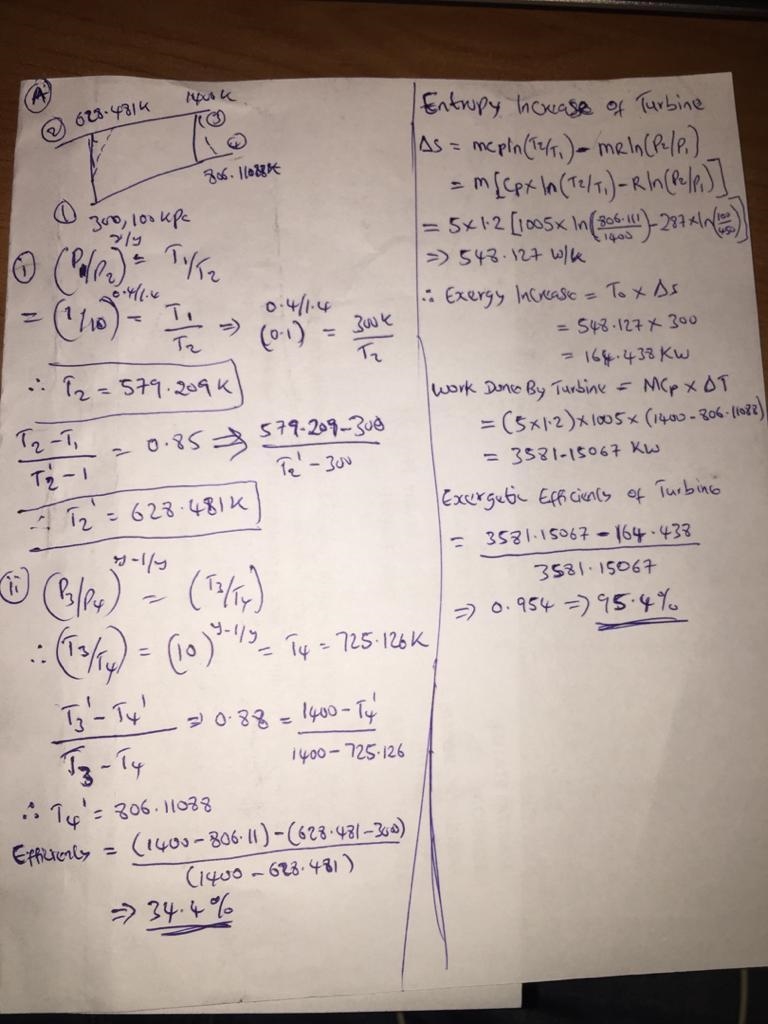 A
628.481K 1400K
2 3
4
806.11088K
1 300, 100kPa
i (P1/P2)^γ-1/γ = T1/T2
= (1/10)^0.4/1.4 = T1/T2 => (0.1)^0.4/1.4 = 300K/T2
∴ T2 = 579.209K
T2-T1/T2'-1 = 0.85 => 579.209-300/T2'-300
∴ T2' = 628.481K
ii (P3/P4)^γ-1/γ = (T3/T4)
∴ (T3/T4) = (10)^γ-1/γ = T4 = 725.126K
T3'-T4'/T3-T4 => 0.88 = 1400-T4'/1400-725.126
∴ T4' = 806.11088
Efficiency = (1400-806.11)-(628.481-300)/(1400-628.481)
=> 34.4%
Entropy Increase of Turbine
Δs = mcpln(T2/T1) - mRln(P2/P1)
= m[Cp×ln(T2/T1)-Rln(P2/P1)]
= 5×1.2[1005×ln(806.111/1400)-287×ln(100/450)]
=> 548.127 W/K
∴ Exergy Increase = To × Δs
= 548.127 × 300
= 164.438 KW
Work Done By Turbine = MCp × ΔT
= (5×1.2)×1005×(1400-806.11088)
= 3581.15067 KW
Exergetic Efficiency of Turbine
= 3581.15067 - 164.438/3581.15067
=> 0.954 => 95.4%